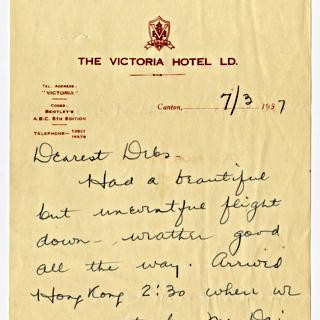 THE VICTORIA HOTEL LD.
TEL. ADDRESS:
"VICTORIA"
CODES:
BENTLEY'S
A.B.C. 5TH EDITION
TELEPHONE—13501
Canton, 7/3 1937
Dearest Debs
Had a beautiful
but uneventful flight
down – weather good
all the way. Arrived
Hong Kong 2:30 when we